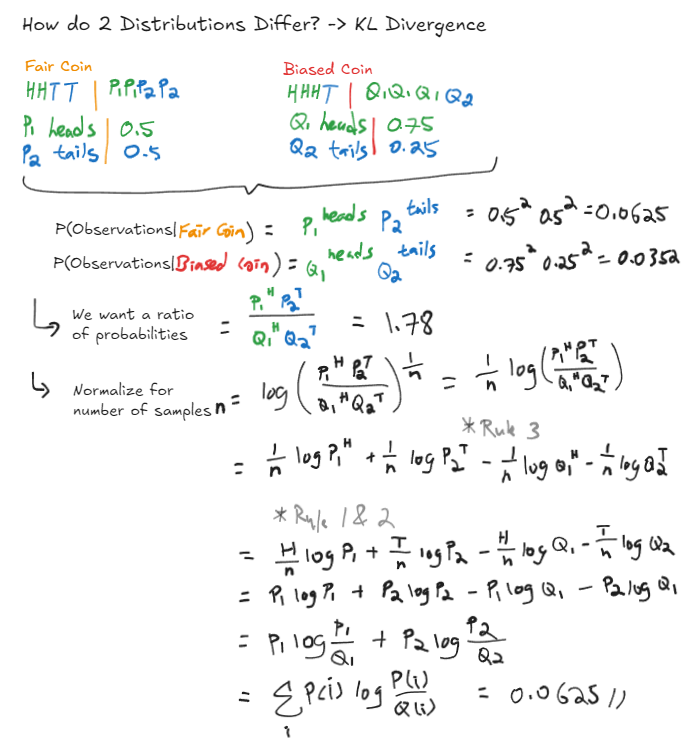 How do 2 Distributions Differ? -> KL Divergence
Fair Coin
HHTT | P₁P₁P₂P₂
P₁ heads | 0.5
P₂ tails | 0.5
Biased Coin
HHHT | Q₁Q₁Q₁Q₂
Q₁ heads | 0.75
Q₂ tails | 0.25
P(Observations|Fair Coin) = P₁^heads P₂^tails = 0.5² 0.5² = 0.0625
P(Observations|Biased Coin) = Q₁^heads Q₂^tails = 0.75² 0.25² = 0.0352
We want a ratio
of probabilities
= P₁^H P₂^T / Q₁^H Q₂^T = 1.78
Normalize for
number of samples n = log (P₁^H P₂^T / Q₁^H Q₂^T)^(1/n) = 1/n log (P₁^H P₂^T / Q₁^H Q₂^T)
* Rule 3
= 1/n log P₁^H + 1/n log P₂^T - 1/n log Q₁^H - 1/n log Q₂^T
* Rule 1 & 2
= H/n log P₁ + T/n log P₂ - H/n log Q₁ - T/n log Q₂
= P₁ log P₁ + P₂ log P₂ - P₁ log Q₁ - P₂ log Q₁
= P₁ log P₁/Q₁ + P₂ log P₂/Q₂
= Σ_i P(i) log P(i)/Q(i) = 0.0625 //